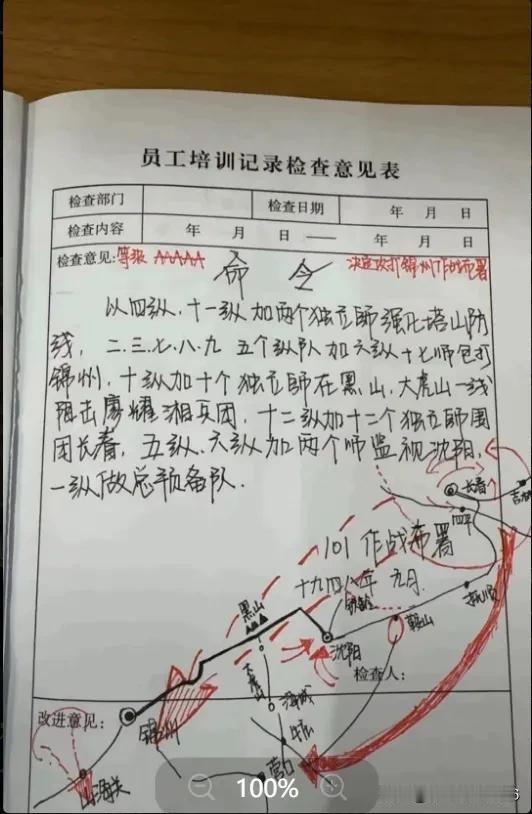 员工培训记录检查意见表
检查部门 检查日期 年 月 日
检查内容 年 月 日 —— 年 月 日
检查意见: 等级 AAAAA 命令 决定攻打锦州作战布署
以四纵、十一纵加两个独立师强化塔山防
线，二、三、七、八、九 五个纵队加六纵十七师包打
锦州，十纵加十个独立师在黑山、大虎山一线
阻击廖耀湘兵团，十二纵加十二个独立师围
困长春，五纵、六纵加两个师监视沈阳，
一纵做总预备队．
长春
吉林
四平
101作战布署
十九四八年 九月．
铁岭
抚顺
黑山
鞍山
沈阳
大虎山
检查人:
海城
改进意见:
锦州
牛庄
营口
山海关
100%